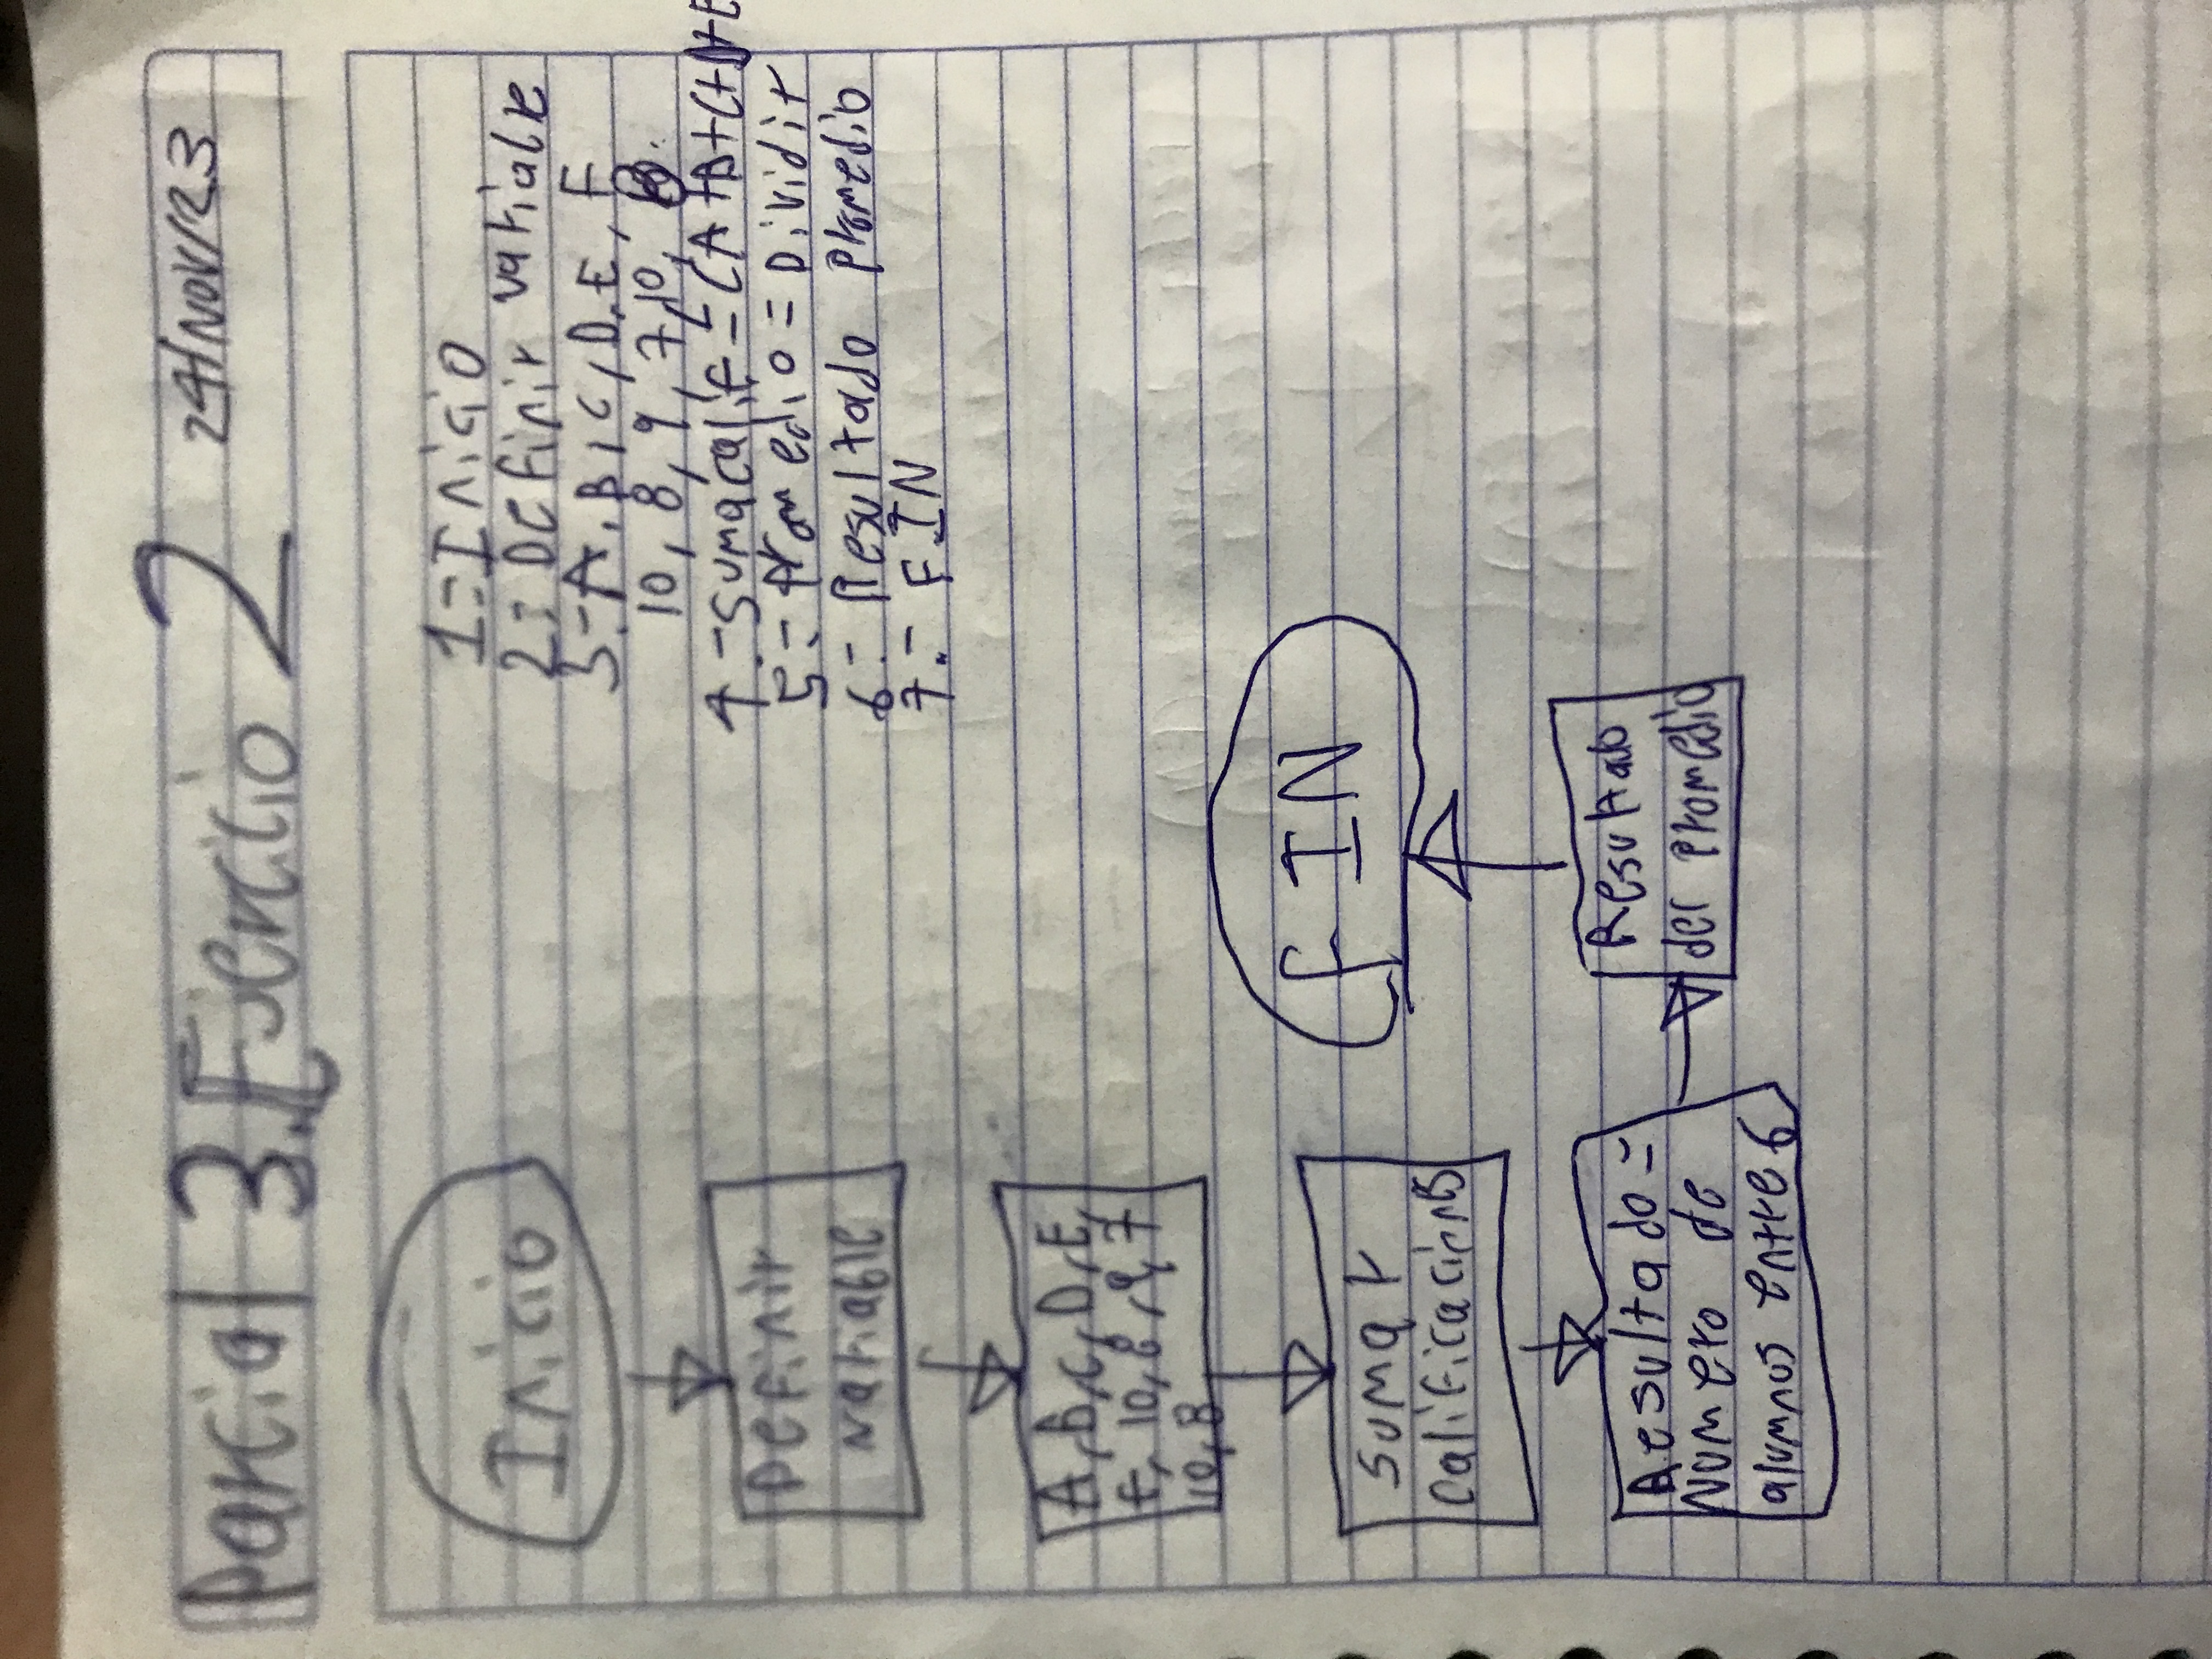 Parcial 3. Ejercicio 2 24/NOV/23
1.- Inicio
2.- Definir variable
3.- A, B, C, D, E, F
10, 8, 9, 7, 10, 8.
4.- Sumacalif = (A+B+C+D+E
5.- Promedio = Dividir
6.- Resultado promedio
7.- FIN
Inicio
Definir
variable
A, B, C, D, E,
F, 10, 8, 9, 7
10, 8
sumar
calificacines
Resultado =
Numero de
alumnos entre 6
Resultado
del promedio
FIN